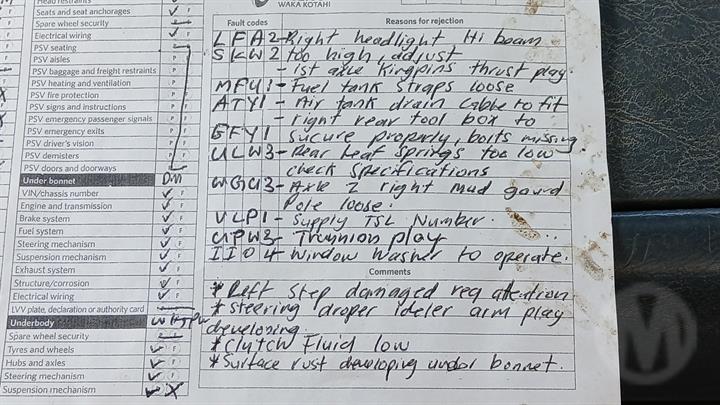 WAKA KOTAHI
Fault codes Reasons for rejection
LFA2- Right headlight Hi beam
SKW2 too high, adjust
- 1st axle kingpins thrust play.
MFU1- Fuel tank straps loose
ATY1- Air tank drain cable to fit
- right rear tool box to
BFY1 sucure properly, bolts missing
ULW3- Rear Leaf springs too low
check specifications
WGU3- Axle 2 right mud gaurd
Pole loose.
VLP1- Supply TSL Number.
UPW3- Trunnion play
II04 - Window washer to operate.
Comments
* Left Step damaged req attention
* Steering droper ideler arm play
developing.
* Clutch Fluid low
* Surface rust developing under bonnet.
Head restraints
Seats and seat anchorages F
Spare wheel security F
Electrical wiring F
PSV seating P
PSV aisles P
PSV baggage and freight restraints P
PSV heating and ventilation P
PSV fire protection P
PSV signs and instructions P
PSV emergency passenger signals P
PSV emergency exits P
PSV driver's vision P
PSV demisters P
PSV doors and doorways P
Under bonnet DM
VIN/chassis number F
Engine and transmission F
Brake system F
Fuel system F
Steering mechanism F
Suspension mechanism F
Exhaust system F
Structure/corrosion F
Electrical wiring F
LVV plate, declaration or authority card
Underbody
Spare wheel security
Tyres and wheels F
Hubs and axles F
Steering mechanism F
Suspension mechanism
M